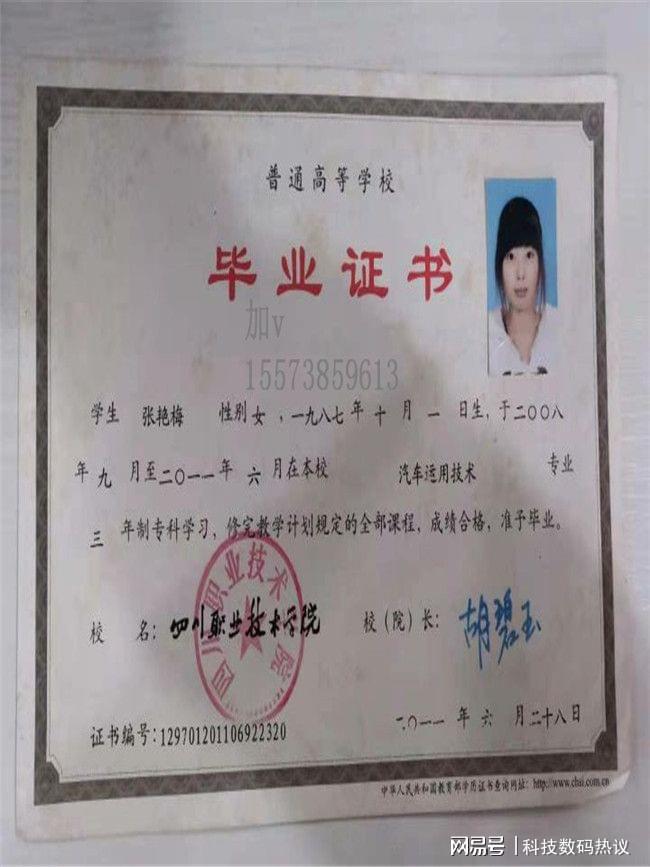 普通高等学校
毕业证书
加v
15573859613
学生 张艳梅 性别女，一九八七年十月一日生，于二〇〇八
年九月至二〇一一年六月在本校 汽车运用技术 专业
三年制专科学习，修完教学计划规定的全部课程，成绩合格，准予毕业。
四川职业技术学院
校 名：四川职业技术学院 校（院）长：胡碧玉
二〇一一年六月二十八日
证书编号：129701201106922320
中华人民共和国教育部学历证书查询网址：http://www.chsi.com.cn
网易号|科技数码热议